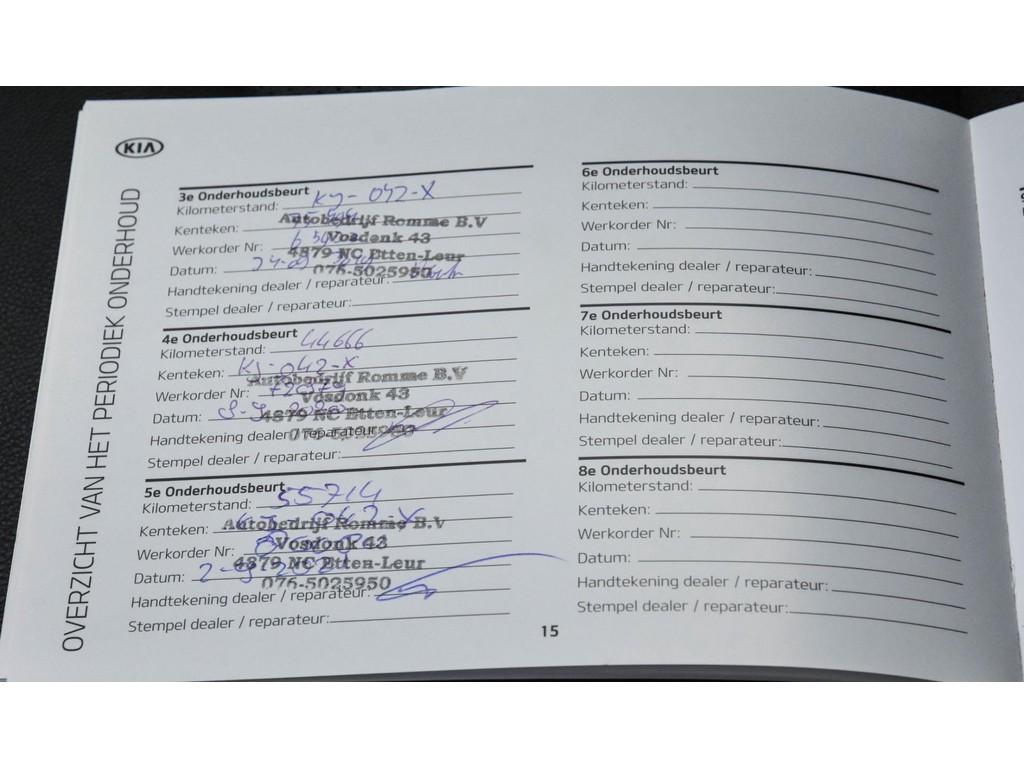 KIA
OVERZICHT VAN HET PERIODIEK ONDERHOUD
3e Onderhoudsbeurt
Kilometerstand: KJ-042-X
Kenteken:
Autobedrijf Romme B.V
Werkorder Nr:
Vosdonk 43
4879 NC Etten-Leur
Datum:
076-5025950
Handtekening dealer / reparateur:
Stempel dealer / reparateur:
4e Onderhoudsbeurt
Kilometerstand: 44666
Kenteken: KJ-042-X
Autobedrijf Romme B.V
Werkorder Nr:
Vosdonk 43
Datum:
4879 NC Etten-Leur
Handtekening dealer / reparateur:
Stempel dealer / reparateur:
5e Onderhoudsbeurt
Kilometerstand: 55714
Kenteken: KJ-042-X
Autobedrijf Romme B.V
Werkorder Nr:
Vosdonk 43
4879 NC Etten-Leur
Datum:
076-5025950
Handtekening dealer / reparateur:
Stempel dealer / reparateur:
6e Onderhoudsbeurt
Kilometerstand:
Kenteken:
Werkorder Nr:
Datum:
Handtekening dealer / reparateur:
Stempel dealer / reparateur:
7e Onderhoudsbeurt
Kilometerstand:
Kenteken:
Werkorder Nr:
Datum:
Handtekening dealer / reparateur:
Stempel dealer / reparateur:
8e Onderhoudsbeurt
Kilometerstand:
Kenteken:
Werkorder Nr:
Datum:
Handtekening dealer / reparateur:
Stempel dealer / reparateur:
15